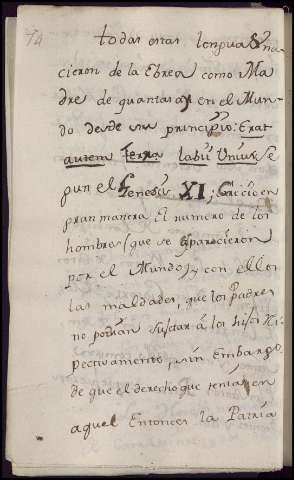 74
todas estas lenguas Na
cieron de la Ebrea como Ma
dre de quantas ay en el Mun-
do desde su principio: Erat
autem Terra labii Unius, se
gun el Genesis XI; Crecio en
gran manera El numero de los
hombres (que se esparcieron
por el Mundo) y con ellos
las maldades, que los Padres
no podian sujetar á los hijos
pectivamente, sin Embargo
de que el derecho que tenian en
aquel Entonces la Patria